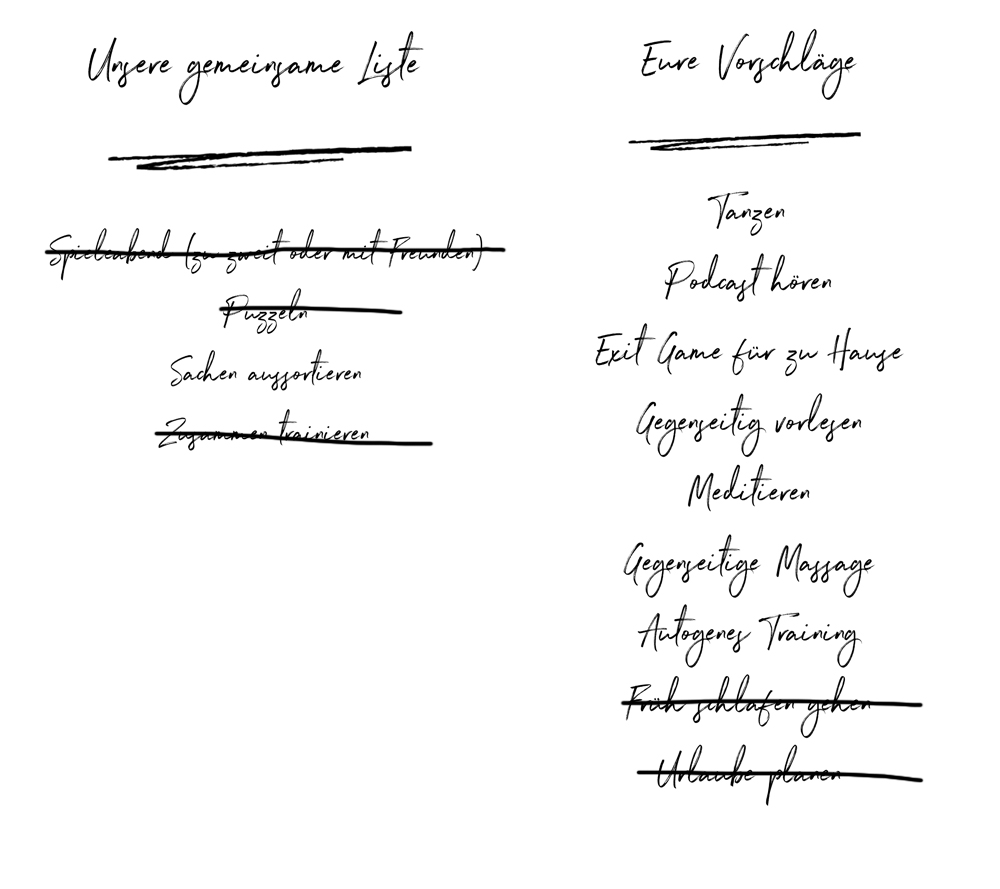 Unsere gemeinsame Liste
Spieleabend (zu zweit oder mit Freunden)
Puzzeln
Sachen aussortieren
Zusammen trainieren
Eure Vorschläge
Tanzen
Podcast hören
Exit Game für zu Hause
Gegenseitig vorlesen
Meditieren
Gegenseitige Massage
Autogenes Training
Früh schlafen gehen
Urlaube planen